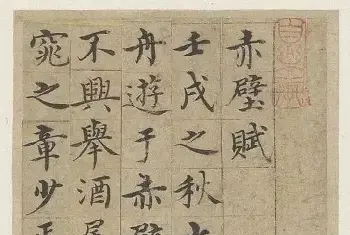 赤壁賦
壬戌之秋
舟遊于赤壁
不興舉酒
窕之章少